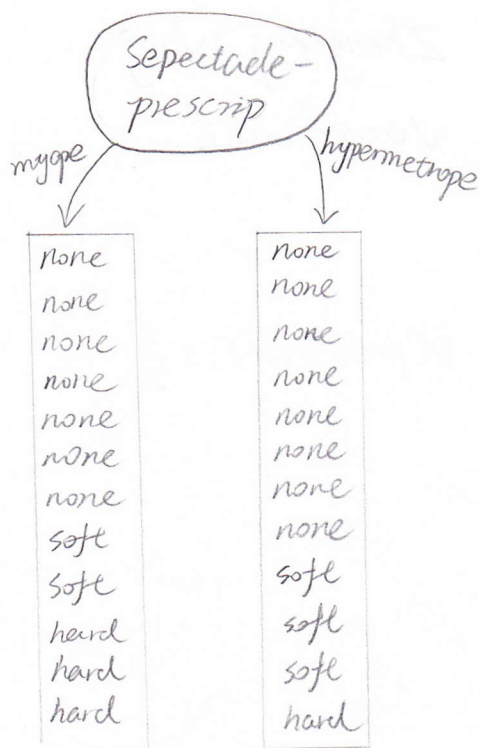 Sepectacle-
prescrip
myope
hypermetrope
none
none
none
none
none
none
none
soft
soft
hard
hard
hard
none
none
none
none
none
none
none
none
soft
soft
soft
hard